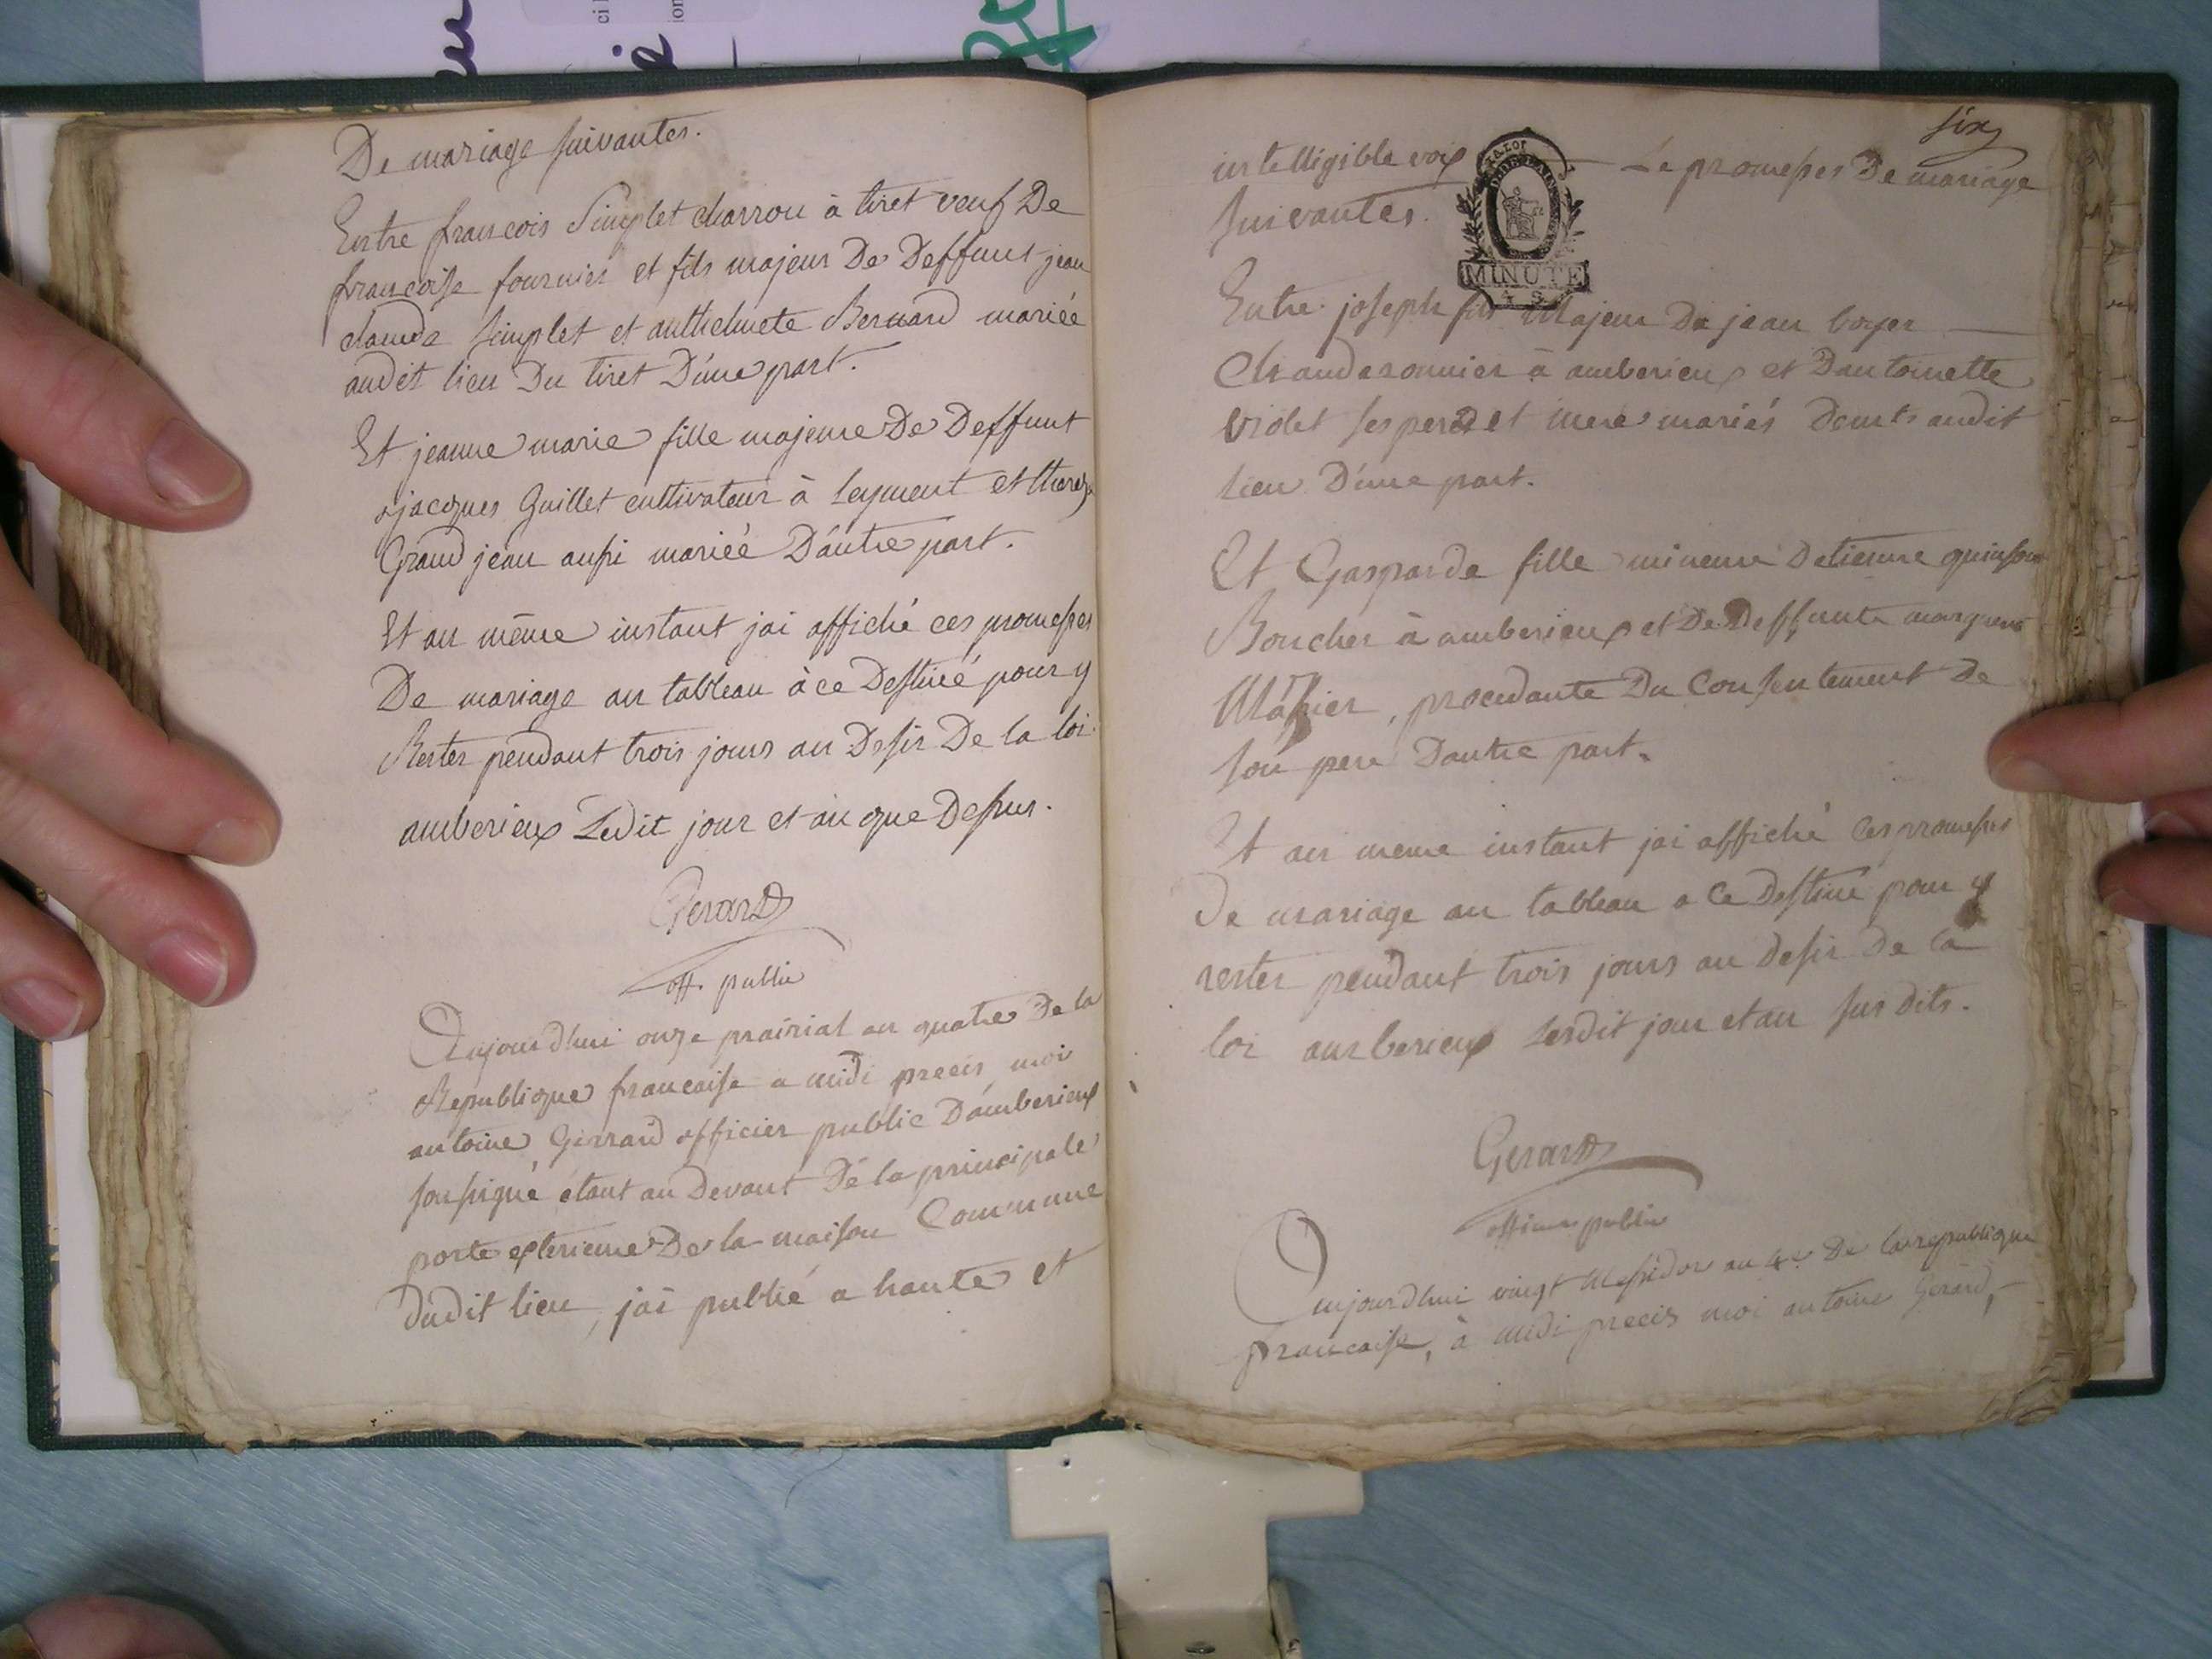 De mariage suivantes.
Entre francois Simplet charron à tiret veuf De
francoise fournier et fils majeur De Deffunt jean
claude simplet et anthelmete Bernard mariée
audit lieu Du tiret D'une part.
Et jeanne marie fille majeure De Deffunt
jacques Guillet cultivateur à Leyment et therez
Grand jean aussi mariée D'autre part.
Et au même instant jai affiché ces promesses
De mariage au tableau à ce Destiné pour y
Rester pendant trois jours au Desir De la loi.
amberieux Ledit jour et an que Dessus.
Gerard
off. public
Aujourdhui onze prairial an quatre De la
Republique francaise a midi precis moi
antoine Gerrard officier public D'amberieux
soussigné étant au Devant De la principale
porte exterieure De la maison Commune
dudit lieu, jai publié a haute et
six
intelligible voix Le promesses De mariage
suivantes.
MINUTE
4 S
Entre joseph fils Majeur De jean boyer
Chauderonnier à amberieux et Dantoinette
violet ses pere et mere mariés Deurts audit
lieu D'une part.
Et Gasparde fille mineure Detienne quinson
Boucher à amberieux et De Deffunte marguerite
, procedante Du Consentement De
son pere Dautre part.
Et au meme instant jai affiché Ces promesses
De mariage au tableau a Ce Destiné pour y
rester pendant trois jours au desir De la
loi amberieux Lesdit jour et an sus dits.
Gerard
officier public
Aujourdhui vingt Messidor an 4e De la republique
francaise, à midi precis moi antoine Gerard,